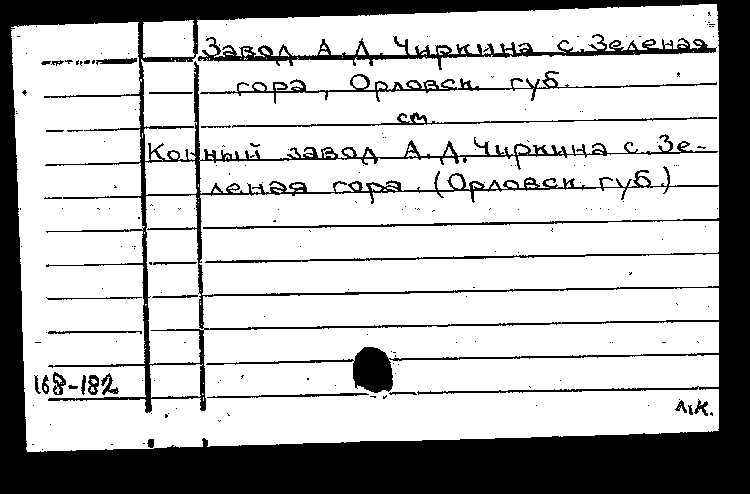 Завод А.Д. Чиркина с. Зеленая
гора, Орловск. губ.
см.
Конный завод А.Д. Чиркина с. Зе-
леная гора. (Орловск. губ.)
168-182